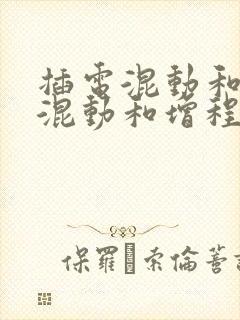 插電混動和
混動和增程
保羅·索倫蓄